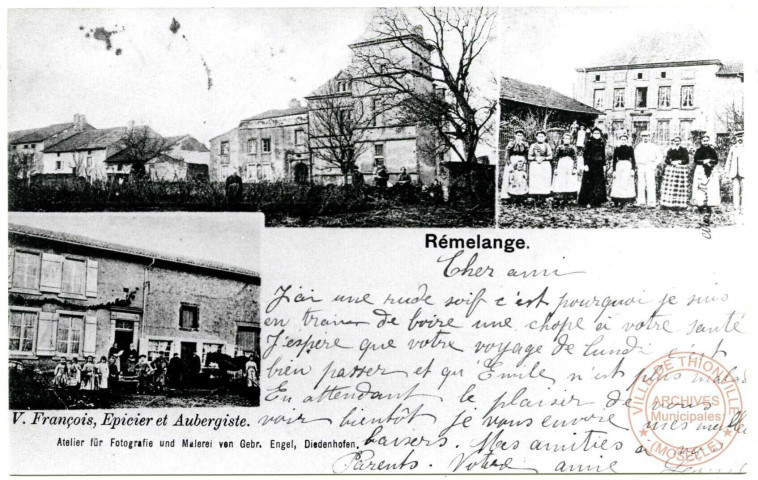 Rémelange.
Cher ami
J'ai une rude soif c'est pourquoi je suis
en train de boire une chope à votre santé
J'espere que votre voyage de lundi c'est
bien passer et qu'Emile n'est pas malade
En attendant le plaisir de vous
voir bientôt je vous envoie mes meilleurs
baisers. Mes amitiés à vos
Parents. Votre amie
V. François, Epicier et Aubergiste.
Atelier für Fotografie und Malerei von Gebr. Engel, Diedenhofen.
VILLE DE THIONVILLE
ARCHIVES
Municipales
(MOSELLE)